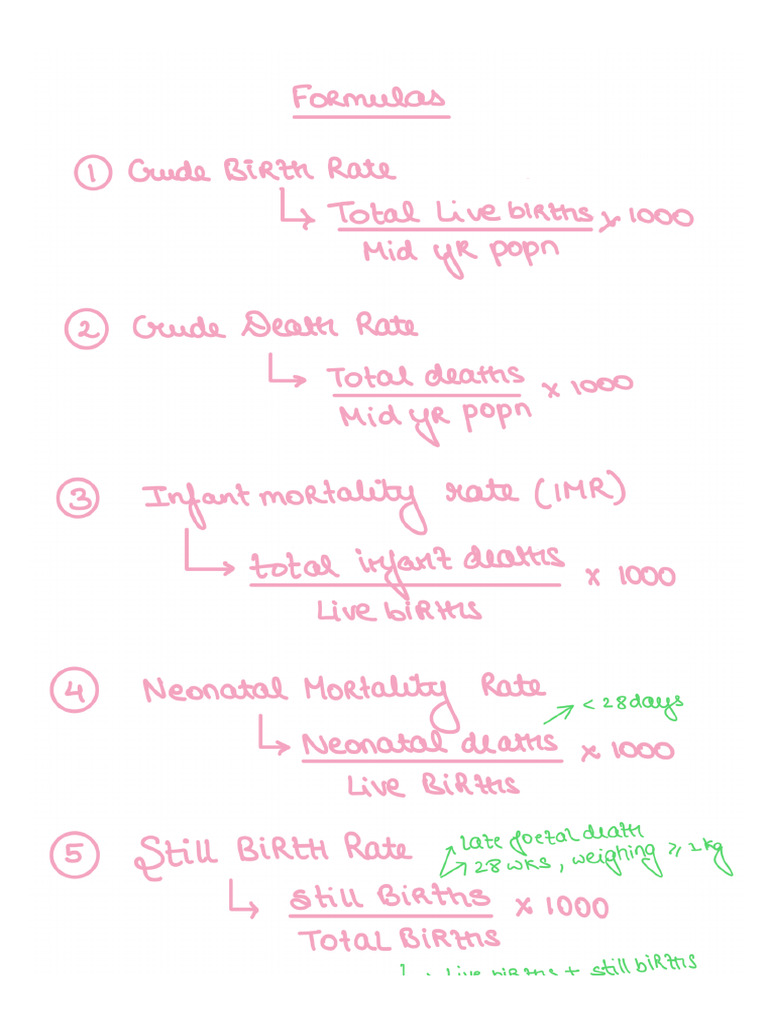 Formulas
① Crude Birth Rate
↳ Total Live births x 1000
Mid yr popn
② Crude Death Rate
↳ Total deaths x 1000
Mid yr popn
③ Infant mortality rate (IMR)
↳ total infant deaths x 1000
Live births
④ Neonatal Mortality Rate
↗ < 28 days
↳ Neonatal deaths x 1000
Live Births
⑤ Still Birth Rate
↗ late foetal death
↗ 28 wks, weighing ≥ 1 kg
↳ still Births x 1000
Total Births
Live births + still births